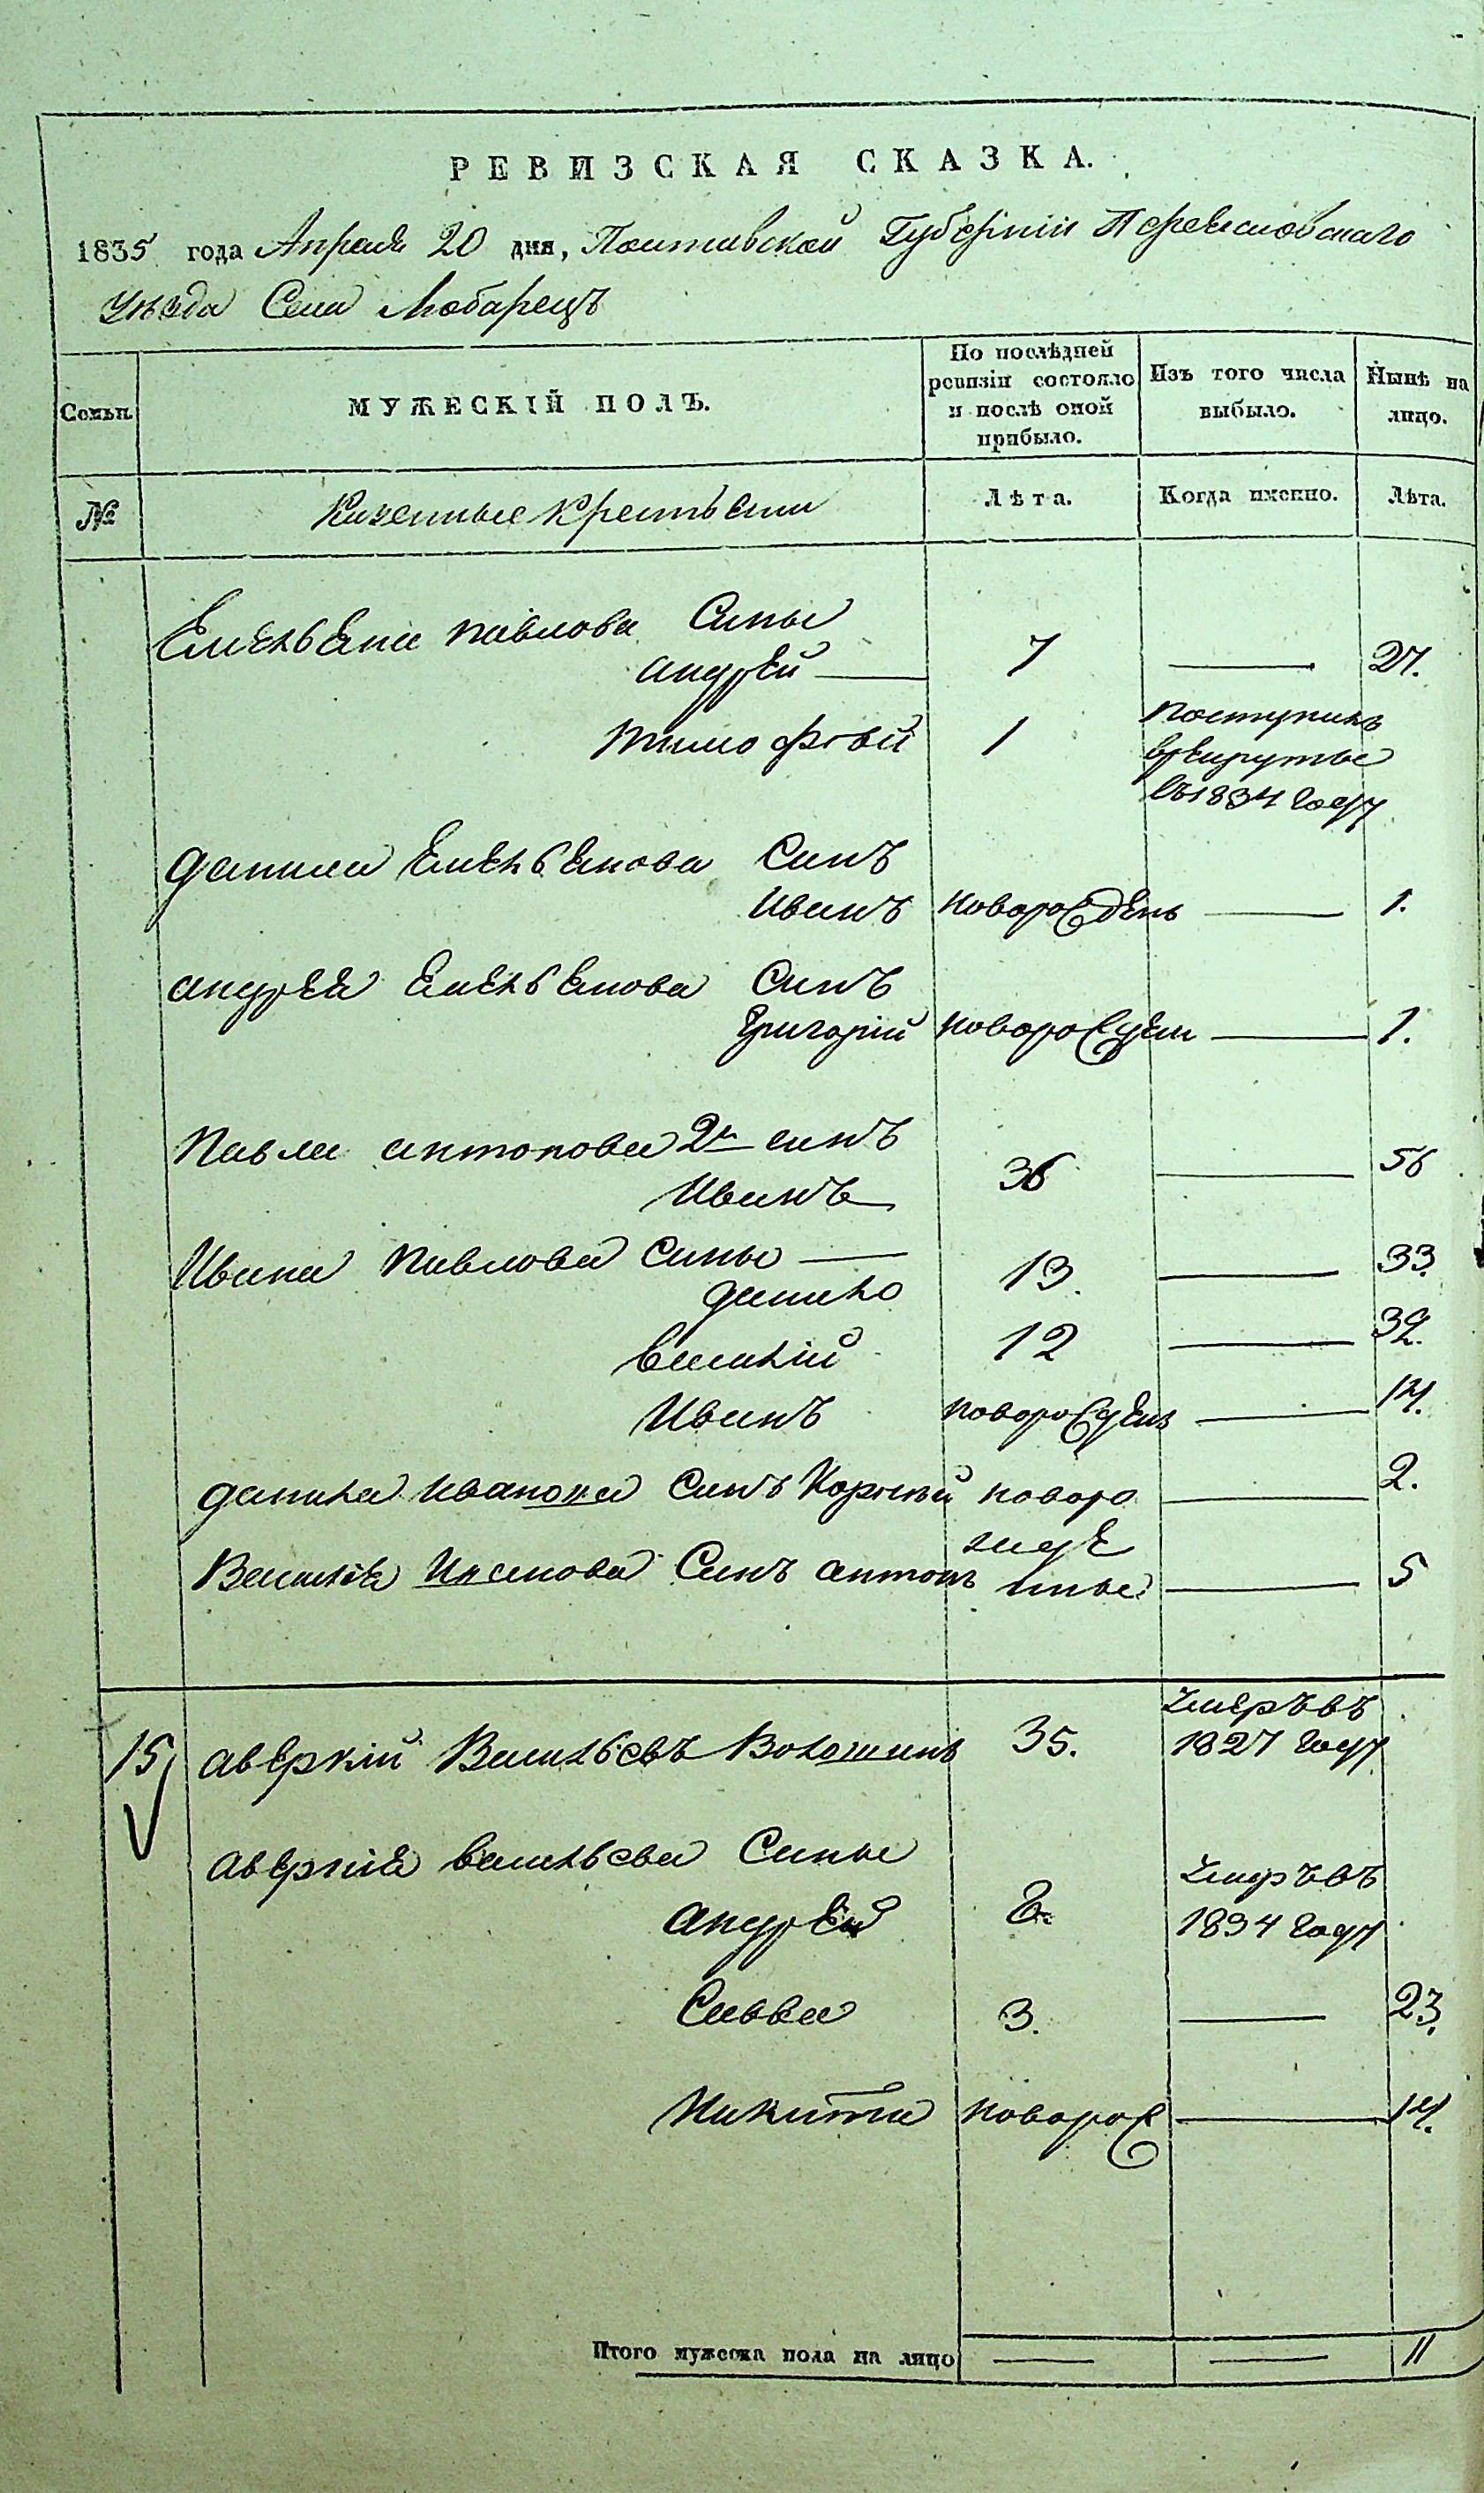 РЕВИЗСКАЯ СКАЗКА.
1835 года Апреля 20 дня, Полтавской Губерніи Переяславскаго
Уѣзда Села Любарецъ
Семьи.
МУЖЕСКІЙ ПОЛЪ.
По послѣдней ревизіи состояло и послѣ оной прибыло.
Изъ того числа выбыло.
Нынѣ на лицо.
№
Казенные Крестьяни
Лѣта.
Когда именно.
Лѣта.
Емельяна павлова Сины
андрей 7 27.
тимофѣй 1 поступилъ
врекруты
въ 1834 году
данила Емельянова Синъ
Иванъ новорожденъ 1.
андрея Емельянова Синъ
Григорій новорожденъ 1.
Павла антонова 2й синъ
Иванъ 36 56
Ивана павлова сины
данило 13. 33.
василій 12 32.
Иванъ новорожденъ 14.
данила иванова Синъ Корнѣй новоро 2.
жде
Василія Иванова Синъ антонъ нные 5
15 аверкій Васильевъ Волошинъ 35. умеръ въ
1827 году
аверкія васильева Сины
андрей 8. умеръ въ
1834 году
Савва 3. 23.
Никита оворож 14.
Итого мужеска пола на лицо 11